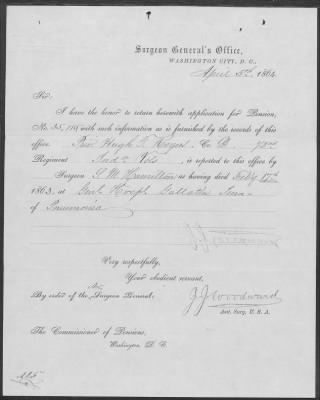 Surgeon General's Office,
WASHINGTON CITY, D. C.,
April 5th, 1864
Sir:
I have the honor to return herewith application for Pension,
No. 35,119 with such information as is furnished by the records of this
office. Priv. Hugh T. Co. B. 72nd
Regiment Ind. Vols. is reported to this office by
Surgeon G. W. Hamilton as having died Feb'y
1863, at Genl. Hosp'l Gallatin Tenn
of Pneumonia
Very respectfully,
Your obedient servant,
By order of the Surgeon General:
J J Woodward
Asst. Surg. U. S. A.
The Commissioner of Pensions,
Washington, D. C.